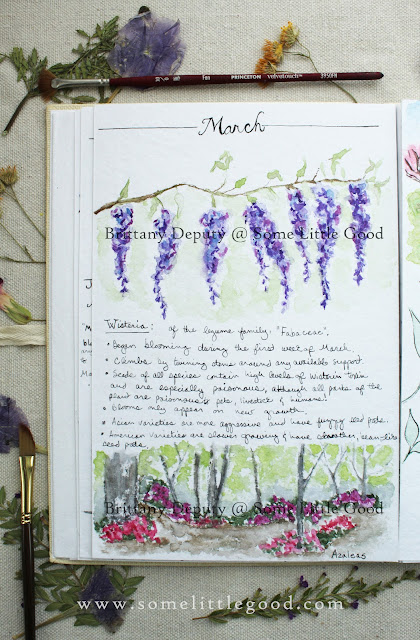 PRINCETON velvetouch™ 3950FN
March
Brittany Deputy @ Some Little Good
Wisteria: of the legume family, "Fabaceae".
• Began blooming during the first week of March
• Climbs by twining stems around any available support
• Seeds of all species contain high levels of Wisteria Toxin
and are especially poisonous, although all parts of the
plant are poisonous to pets, livestock & humans!
• Blooms only appear on new growth.
• Asian varieties are more aggressive and have fuzzy seed pods.
• American varieties are slower growing & have smoother, bean-like
seed pods.
Brittany Deputy @ Some Little Good
Azaleas
www.somelittlegood.com